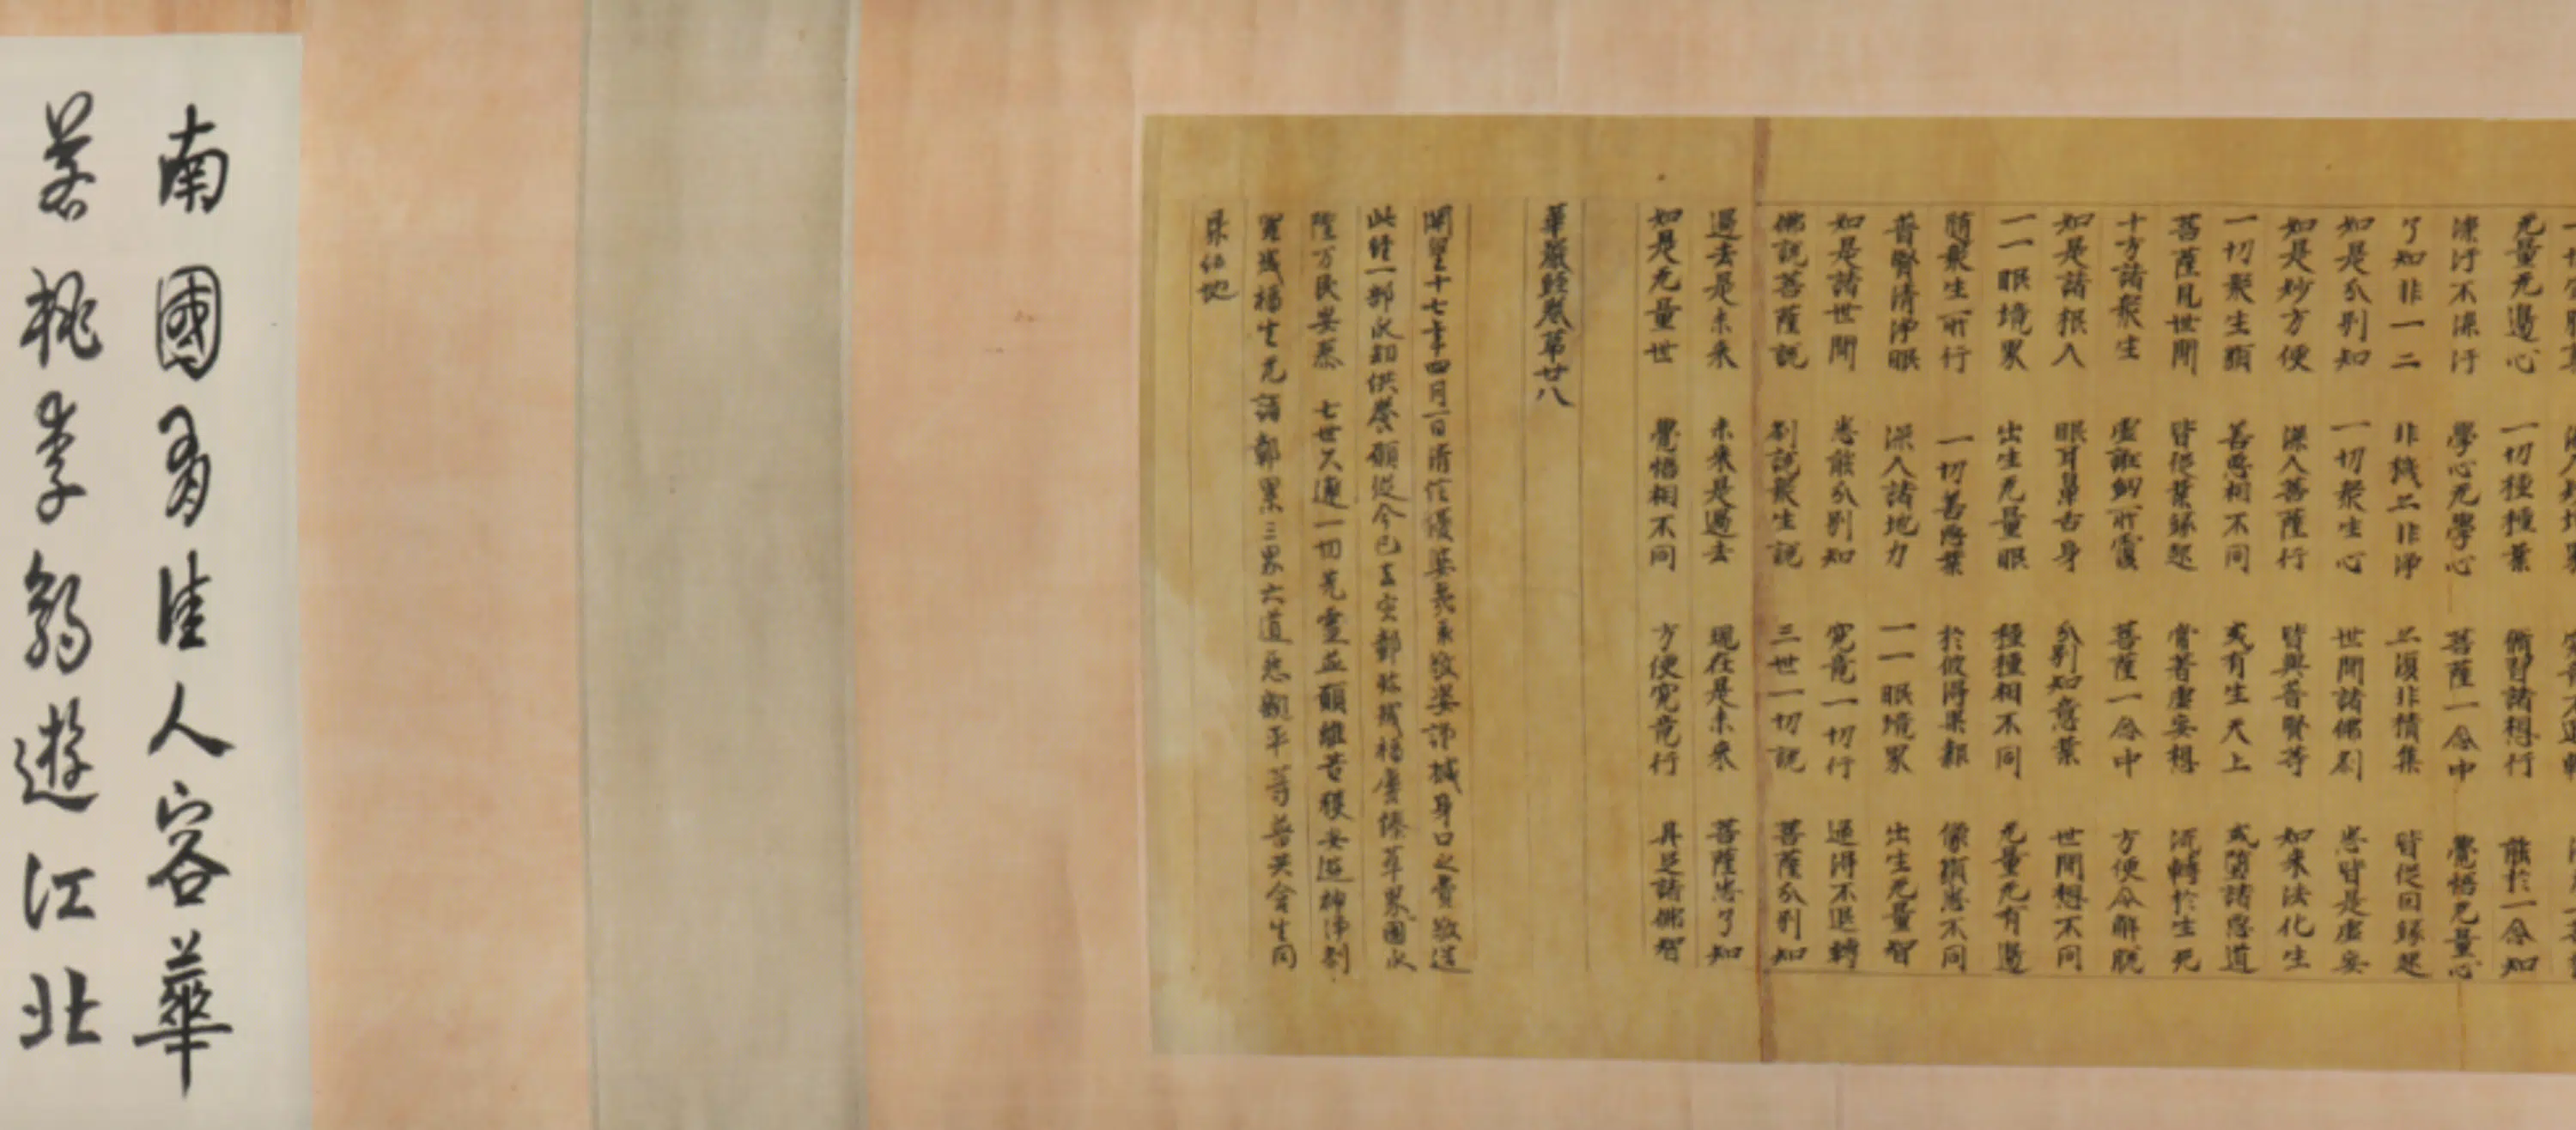 无量无邊心 一切種種業 衆習諸想行 能於一念知
深汙不深汙 學心无學心 菩薩一念中 覺悟无量心
了知非一二 非穢亦非淨 亦復非積集 皆從因緣起
知是分別知 一切衆生心 世間諸佛刹 悉皆是虛妄
如是妙方便 深入菩薩行 皆與普賢等 如來法化生
一切衆生類 善惡相不同 或有生天上 或墮諸惡道
菩薩見世間 皆從業緣起 常著虛妄想 流轉於生死
十方諸衆生 虛誑網所覆 菩薩一念中 方便令解脫
如是諸根入 眼耳鼻舌身 分別知意業 世間想不同
一一眼境界 出生无量眼 種種相不同 无量无有邊
隨衆生所行 一切善惡業 於彼得果報 像類悉不同
普賢清淨眼 深入諸地力 一一眼境界 出生无量智
如是諸世間 悉能分別知 究竟一切行 逮得不退轉
佛說菩薩說 刹說衆生說 三世一切說 菩薩分別知
過去是未來 未來是過去 現在是未來 菩薩悉了知
如是无量世 覺悟相不同 方便究竟行 具足諸佛智
華嚴經卷第廿八
開皇十七年四月一日清信優婆夷袁敬姿謹減身口之費敬造
此經一部永劫供養願從今已去灾鄣殄除福慶臻萃國界永
隆万民安泰 七世久遠一切先靈並願離苦獲安遊神淨刹
罪滅福生无諸鄣累三界六道怨親平等普共含生同
昇佛地
南國有佳人容華
若桃李翱遊江北